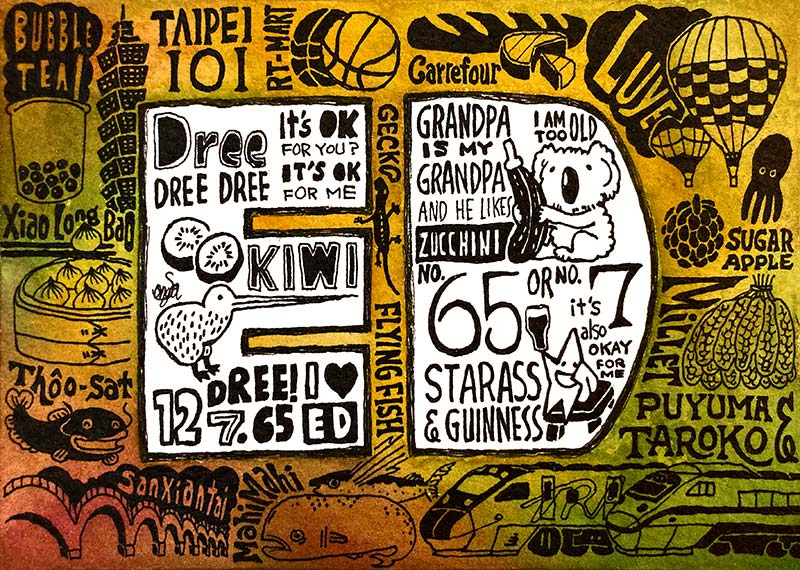 BUBBLE
TEA!
TAIPEI
101
RT-MART
Carrefour
LUYE
Xiao Long Bao
Thôo-sat
SanXiantai
MahiMahi
GECKO
FLYING FISH
SUGAR
APPLE
Millet
PUYUMA &
TAROKO
Dree
DREE DREE
It's OK
FOR YOU?
IT'S OK
FOR ME
KIWI
DREE! I ♥
12 7.65 ED
GRANDPA
IS MY
GRANDPA
AND HE LIKES
ZUCCHINI
I AM
TOO OLD
NO.
65
OR NO. 7
it's
also
OKAY
FOR
ME
STARASS
& GUINNESS